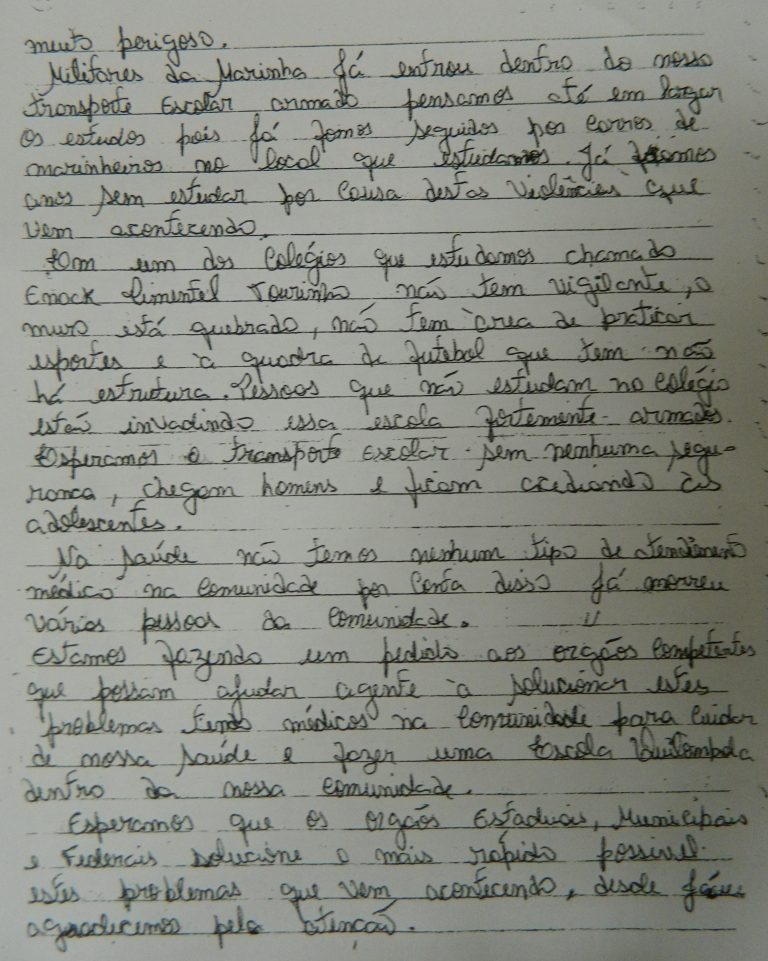 muito perigoso.
Militares da Marinha já entrou dentro do nosso
transporte Escolar armado pensamos até em largar
os estudos pois já fomos seguidos por carros de
marinheiros no local que estudamos. Já ficamos
anos sem estudar por causa destas violências que
vem acontecendo.
Em um dos Colégios que estudamos chamado
Enock Pimentel Tourinho não tem vigilante, o
muro está quebrado, não tem área de praticar
esportes e à quadra de futebol que tem não
há estrutura. Pessoas que não estudam no Colégio
estão invadindo essa escola fortemente armados.
Esperamos o transporte Escolar sem nenhuma segu-
ranca, chegam homens e ficam acediando as
adolescentes.
Na saúde não temos nenhum tipo de atendimento
médico na comunidade por conta disso já morreu
várias pessoas da comunidade. "
Estamos fazendo um pedido aos orgãos competentes
que possam ajudar agente à solucionar estes
problemas tendo médicos na comunidade para cuidar
de nossa saúde e fazer uma Escola Quilombola
dentro da nossa comunidade.
Esperamos que os orgãos Estaduais, Municipais
e Federais solucione o mais rápido possivel
estes problemas que vem acontecendo, desde já
agradecemos pela atenção.